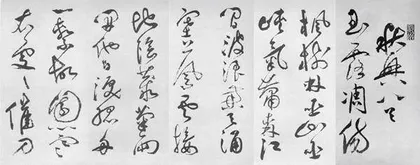 秋興八首
玉露凋傷
楓樹林巫山巫
峽氣蕭森江
間波浪兼天湧
塞上風雲接
地陰叢菊兩
開他日淚孤舟
一繫故園心寒
衣處處催刀